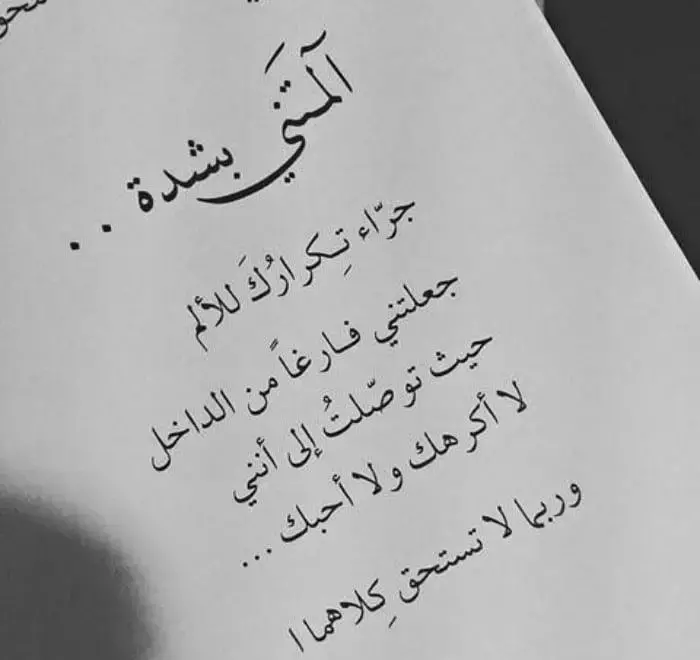 آلمتَني بشدة ..
جرّاء تِكرارُكَ للألم
جعلتني فارغاً من الداخل
حيث توصّلتُ إلى أنني
لا أكرهك ولا أحبك ...
وربما لا تستحق كِلاهما !